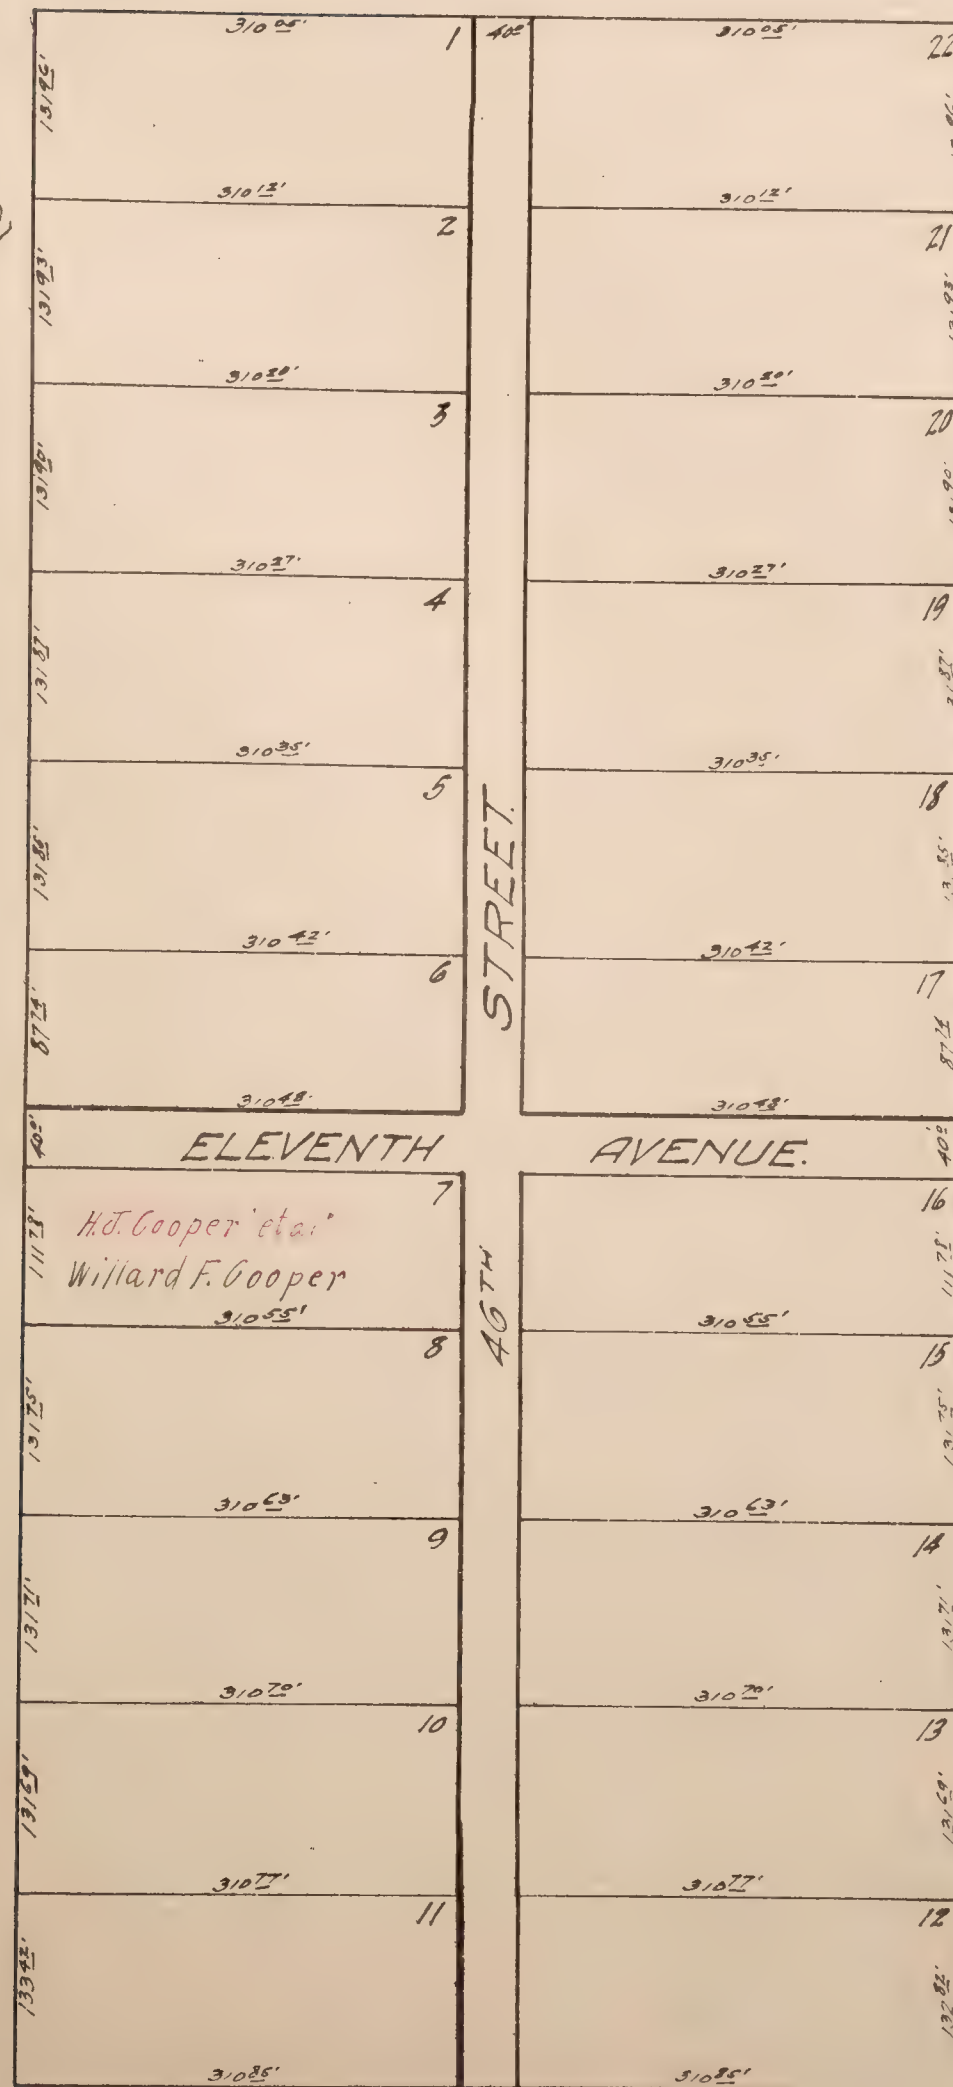 310 05' 1 40º 310 05' 22
131 96'
310 12' 310 12'
2 21
131 93' 131 93'
310 20' 310 20'
3 20
131 90' 131 90'
310 27' 310 27'
4 19
131 87' 131 87'
310 35' 310 35'
5 18
131 85' 131 85'
310 42' 310 42'
6 17
87 74' 87 74
310 48' 310 48'
STREET.
40º ELEVENTH AVENUE. 40º
7 16
111 78' 111 78'
H.J. Cooper et al
Willard F. Cooper
310 55' 310 55'
46TH
8 15
131 75' 131 75'
310 63' 310 63'
9 14
131 71' 131 71'
310 70' 310 70'
10 13
131 69' 131 69'
310 77' 310 77'
11 12
133 42' 132 82'
310 85' 310 85'